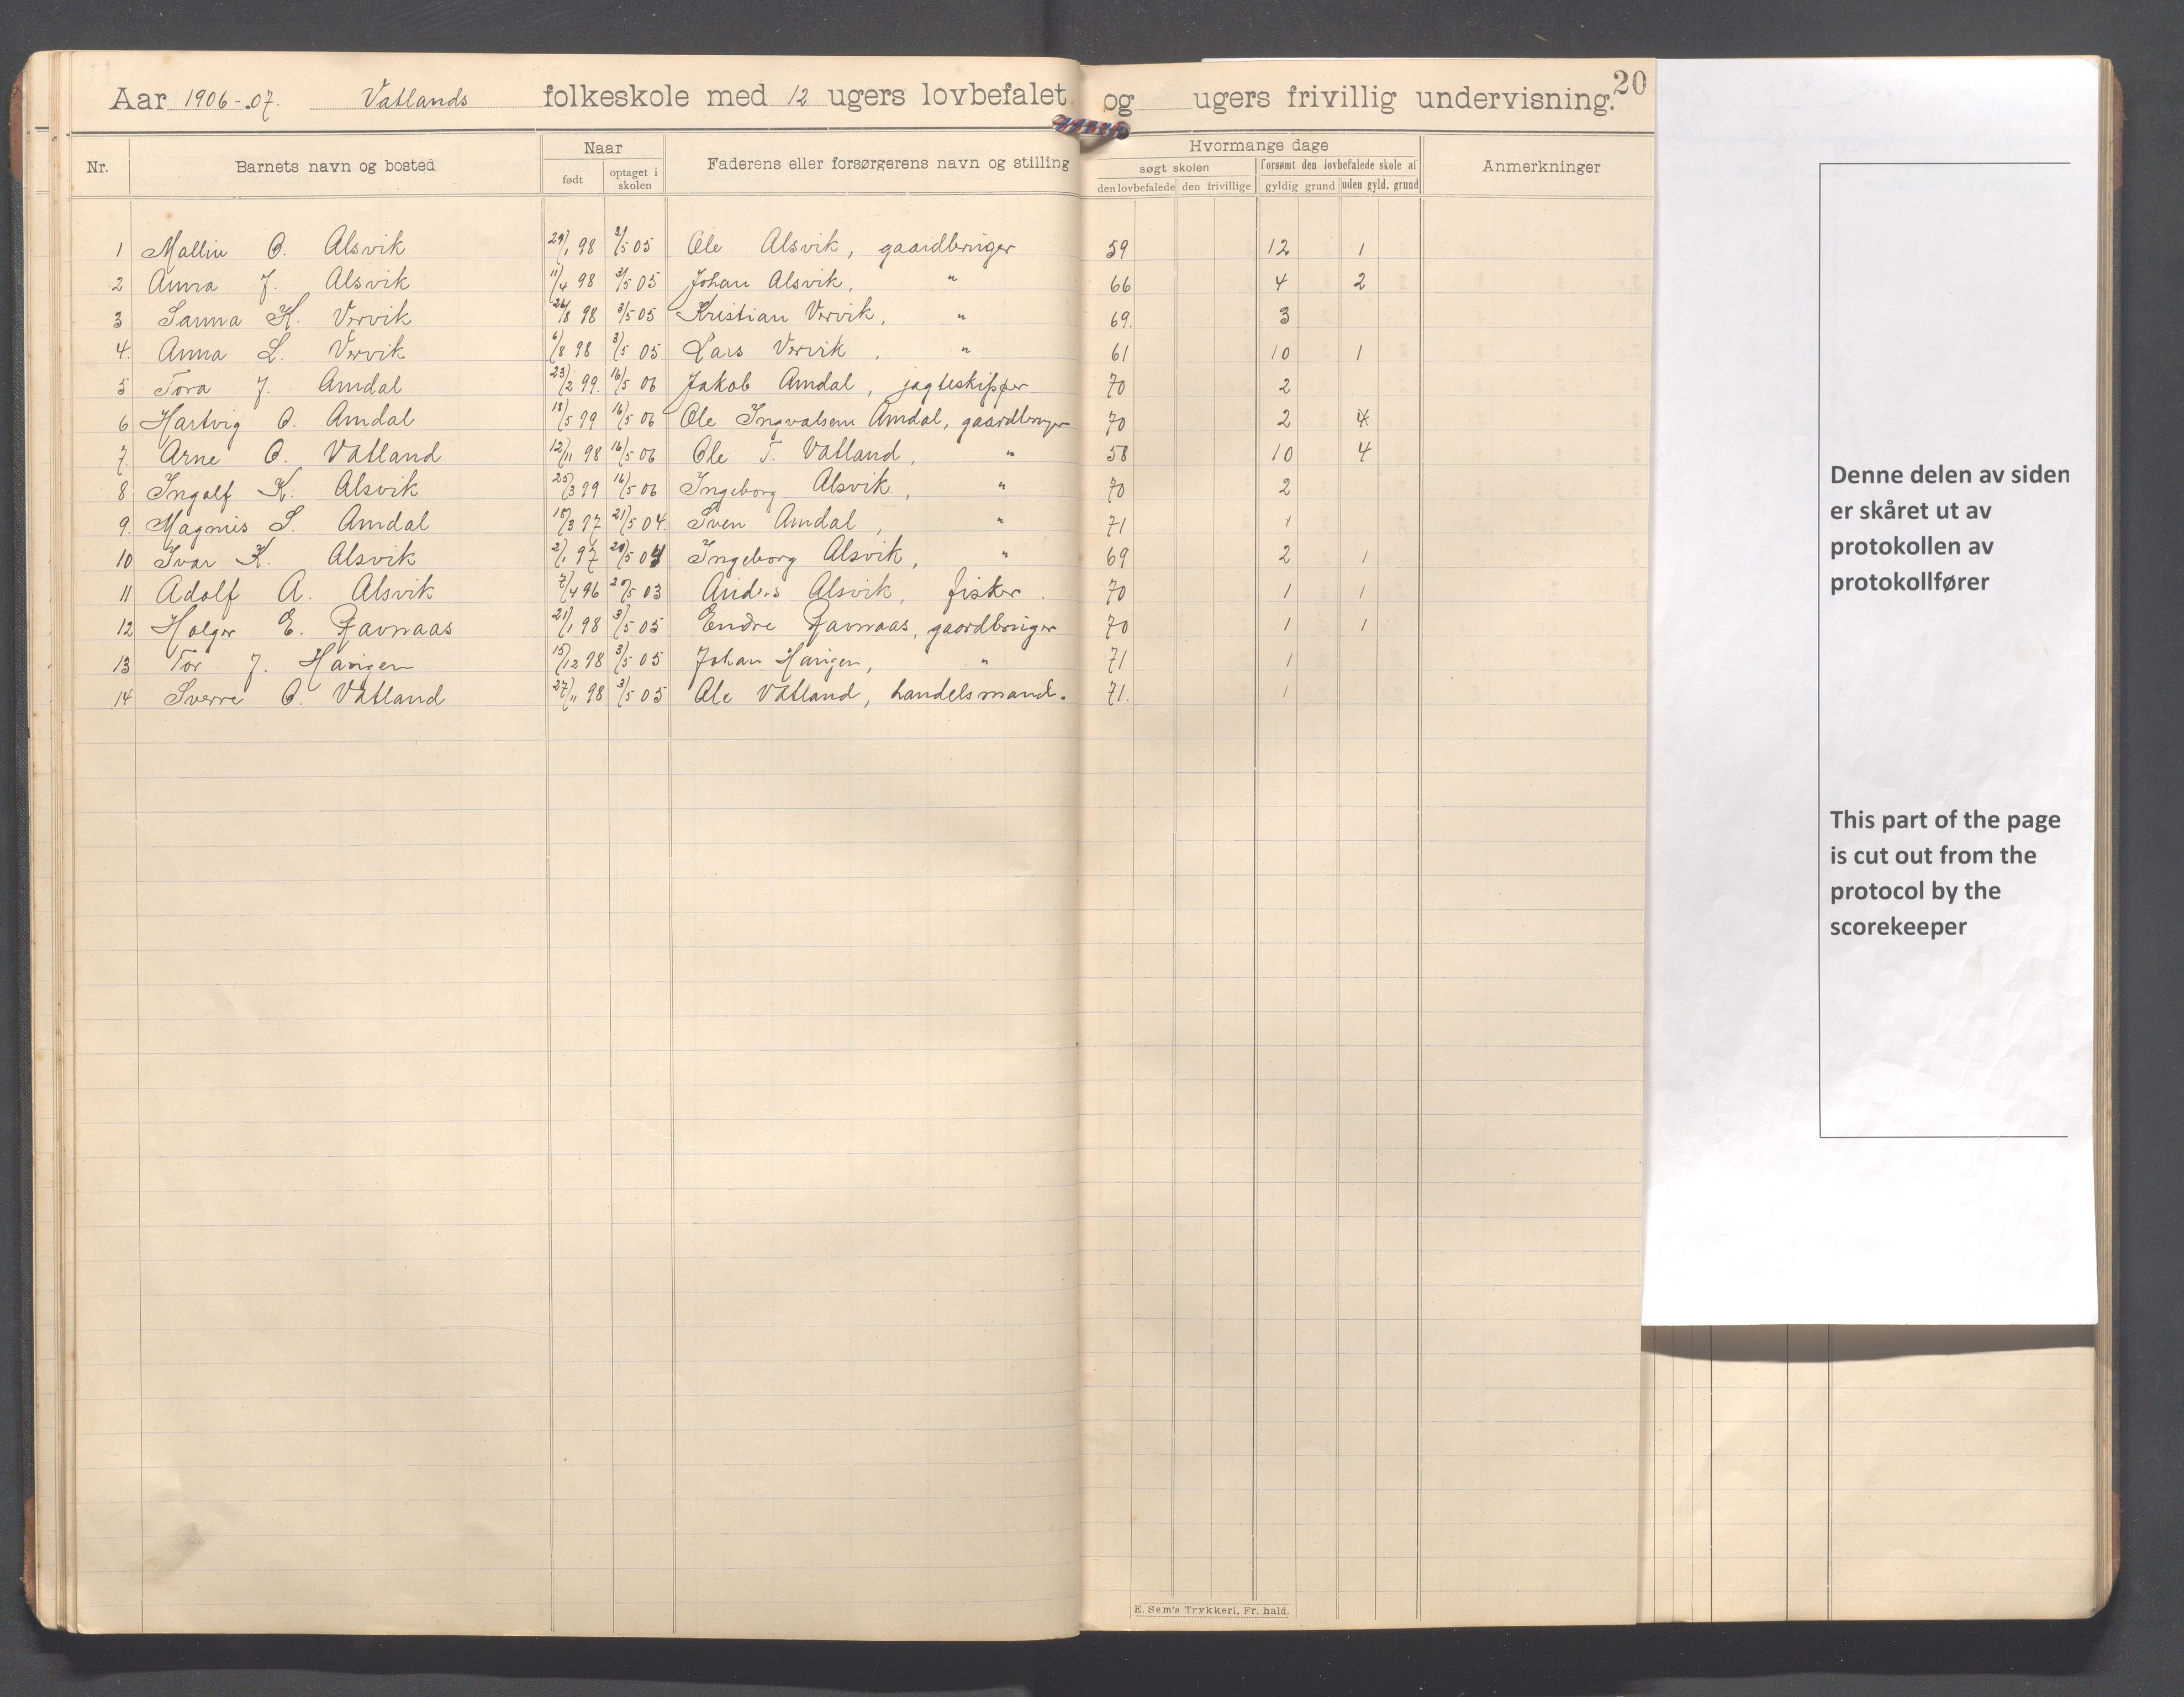 Aar 1906-07. Vatlands folkeskole med 12 ugers lovbefalet og ugers frivillig undervisning. 20
Nr. Barnets navn og bosted Naar Faderens eller forsørgerens navn og stilling Hvormange dage Anmerkninger
født optaget i skolen søgt skolen forsømt den lovbefalede skole af
den lovbefalede den frivillige gyldig grund uden gyld. grund
1 Mallin O. Alsvik 29/1 98 3/5 05 Ole Alsvik, gaardbruger 59 12 1
2 Anna J. Alsvik 11/4 98 3/5 05 Johan Alsvik, " 66 4 2
3 Sanna K. Vervik 26/8 98 3/5 05 Kristian Vervik, " 69. 3
4. Anna L. Vervik 6/8 98 3/5 05 Lars Vervik, " 61 10 1
5 Tora J. Amdal 23/2 99. 16/5 06 Jakob Amdal, jagteskipper 70 2
6 Hartvig O. Amdal 18/5 99 16/5 06 Ole Ingvalsen Amdal, gaardbruger 70 2 4
7. Arne O. Vatland 12/11 98 16/5 06 Ole T. Vatland, " 58 10 4
8 Ingolf K. Alsvik 25/3 99 16/5 06 Ingeborg Alsvik, " 70 2
9. Magnus S. Amdal 18/3 97 21/5 04. Sven Amdal, " 71 1
10 Ivar K. Alsvik 2/1 97 20/5 04 Ingeborg Alsvik, " 69 2 1
11 Adolf A. Alsvik 7/4 96 20/5 03 Anders Alsvik, fisker. 70 1 1
12 Holger E. Ravnaas 21/1 98 3/5 05 Endre Ravnaas, gaardbruger 70 1 1
13 Tor J. Hangen 15/12 98 3/5 05 Johan Hangen, " 71 1
14 Sverre O. Vatland 27/11 98 3/5 05 Ole Vatland, handelsmand. 71. 1
E. Sem's Trykkeri, Fr. hald.
Denne delen av siden
er skåret ut av
protokollen av
protokollfører
This part of the page
is cut out from the
protocol by the
scorekeeper